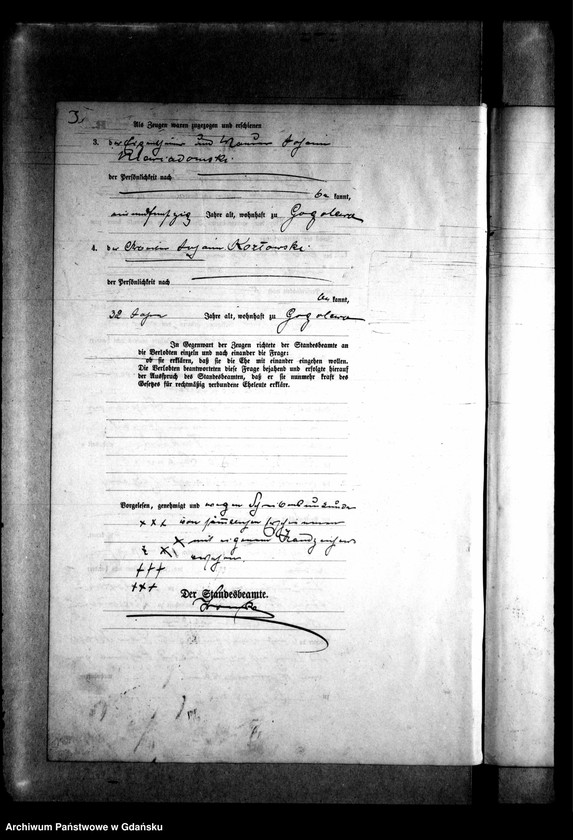 3.
Als Zeugen waren zugezogen und erschienen
3. der Eigenthümer und
der Persönlichkeit nach
be kannt,
einundfunfzig Jahre alt, wohnhaft zu Gogolewo
4. der Kozlowski.
der Persönlichkeit nach
be kannt,
32 Jahre Jahre alt, wohnhaft zu Gogolewo
In Gegenwart der Zeugen richtete der Standesbeamte an
die Verlobten einzeln und nach einander die Frage:
ob sie erklären, daß sie die Ehe mit einander eingehen wollen.
Die Verlobten beantworteten diese Frage bejahend und erfolgte hierauf
der Ausspruch des Standesbeamten, daß er sie nunmehr kraft des
Gesetzes für rechtmäßig verbundene Eheleute erkläre.
Vorgelesen, genehmigt und wegen Schreibensunkunde
+ + + von
+ mit eigenem Handzeichen
versehen.
+++
+++
Der Standesbeamte.
Archiwum Państwowe w Gdańsku